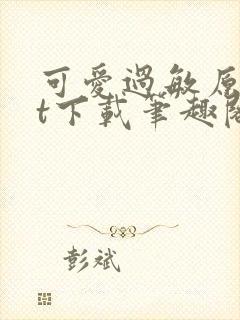 可愛過敏原
t下載筆趣閣
彭斌